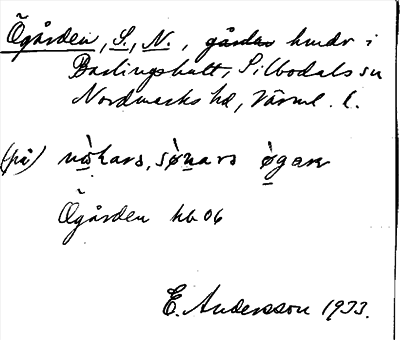 Ögården, S., N., gårdar hmdr i
Barlingshult, Silbodals sn
Nordmarks hd, Värml. l.
(på) nɷ̀kars, sø̀nars ø̀gaɳ
Ögården hb 06
E. Andersson 1933.